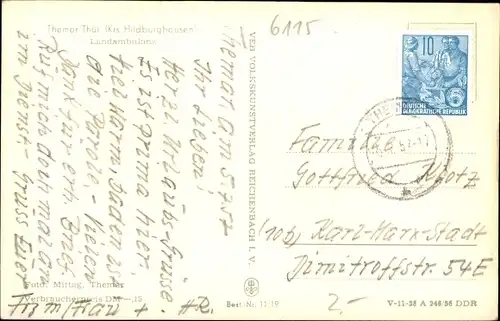 Themar Thür. (Krs. Hildburghausen)
Landambulanz
6115
Themar, am 5.7.57
Ihr Lieben!
Herzl. Urlaubs-Grüsse.
Es ist prima hier,
viel warm, baden ist
die Parole. - Vielen
Dank für erh. Brief.
Ruf mich doch mal an
zum Dienst. - Gruss Euer
+ HR.
Foto: Mittag, Themar
Verbraucherpreis DM -,15
VEB VOLKSKUNSTVERLAG REICHENBACH I. V.
Best.-Nr. 11/19
10
DEUTSCHE
DEMOKRATISCHE REPUBLIK
Familie
Gottfried Klotz
(10b) Karl-Marx-Stadt
Dimitroffstr. 54E
2.-
V-11-38 A 246/56 DDR